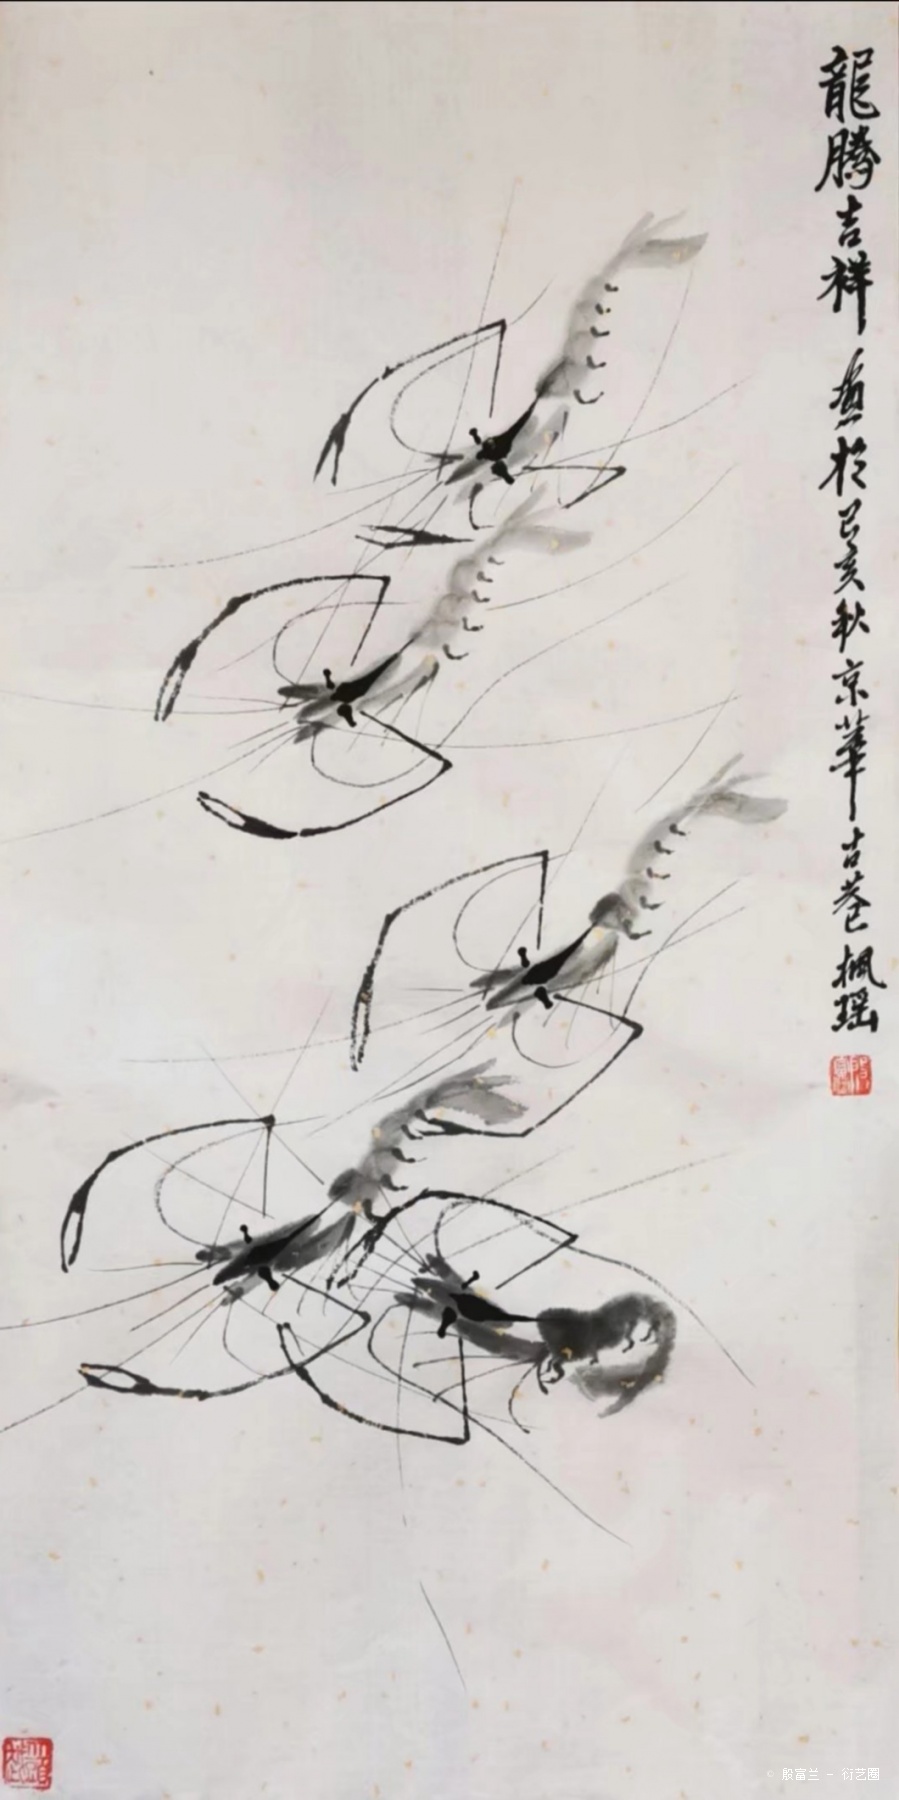 龍騰吉祥 畫於己亥秋京華吉苍楓瑶
© 殷富兰 - 衍艺圈